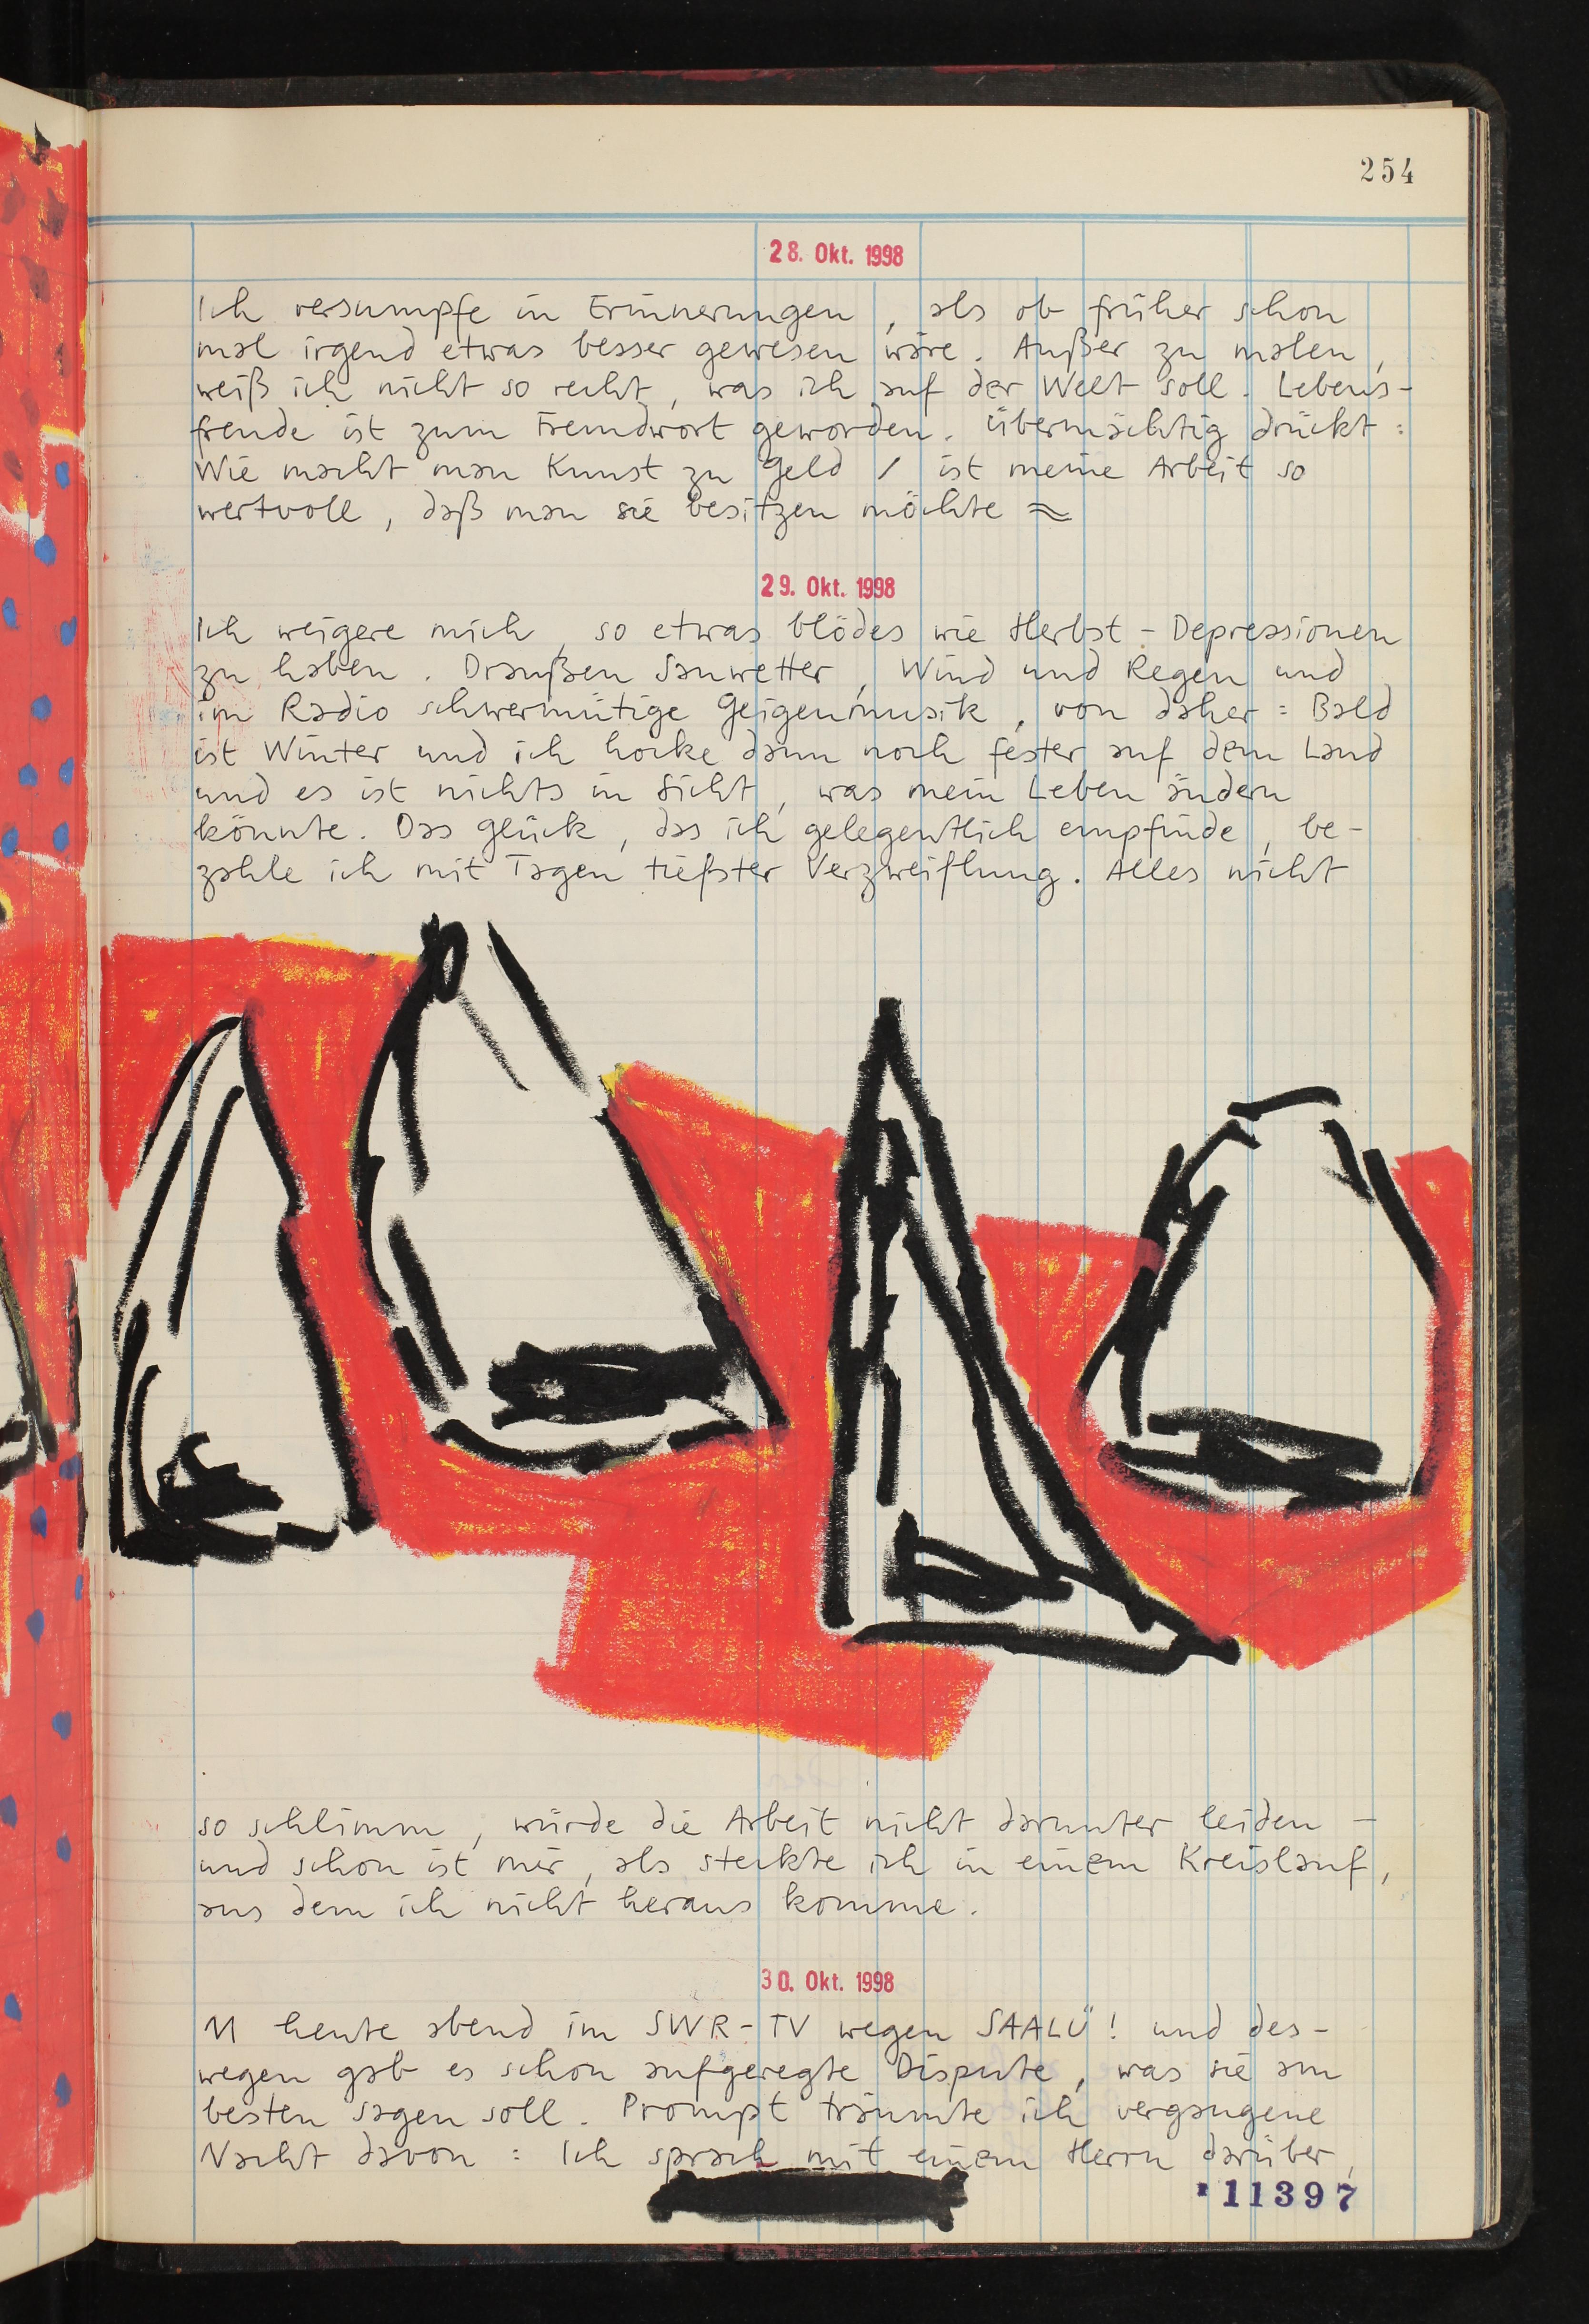 254
28. Okt. 1998
Ich versumpfe in Erinnerungen, als ob früher schon
mal irgend etwas besser gewesen wäre. Außer zu malen,
weiß ich nicht so recht, was ich auf der Welt soll. Lebens-
freude ist zum Fremdwort geworden. Übermächtig drückt:
Wie macht man Kunst zu Geld / ist meine Arbeit so
wertvoll, daß man sie besitzen möchte ≈
29. Okt. 1998
Ich weigere mich, so etwas blödes wie Herbst-Depressionen
zu haben. Draußen Sauwetter, Wind und Regen und
im Radio schwermütige Geigenmusik, von daher: Bald
ist Winter und ich hocke dann noch fester auf dem Land
und es ist nichts in Sicht, was mein Leben ändern
könnte. Das Glück, das ich gelegentlich empfinde, be-
zahle ich mit Tagen tiefster Verzweiflung. Alles nicht
so schlimm, würde die Arbeit nicht darunter leiden -
und schon ist mir, als steckte ich in einem Kreislauf,
aus dem ich nicht heraus komme.
30. Okt. 1998
M heute abend im SWR-TV wegen SAALÜ! und des-
wegen gab es schon aufgeregte Dispute, was sie am
besten sagen soll. Prompt träumte ich vergangene
Nacht davon: Ich sprach mit einem Herrn darüber,
11397